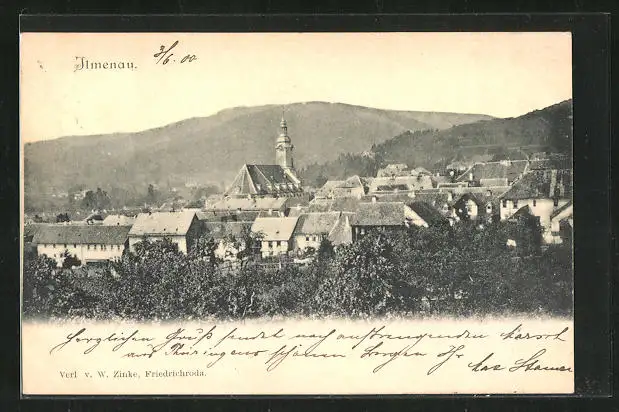 Ilmenau.
3/6. 00
Herzlichen Gruß sendet nach anstrengenden Marsch
aus Thüringens schönen Bergen Ihr
Verl v. W. Zinke, Friedrichroda.